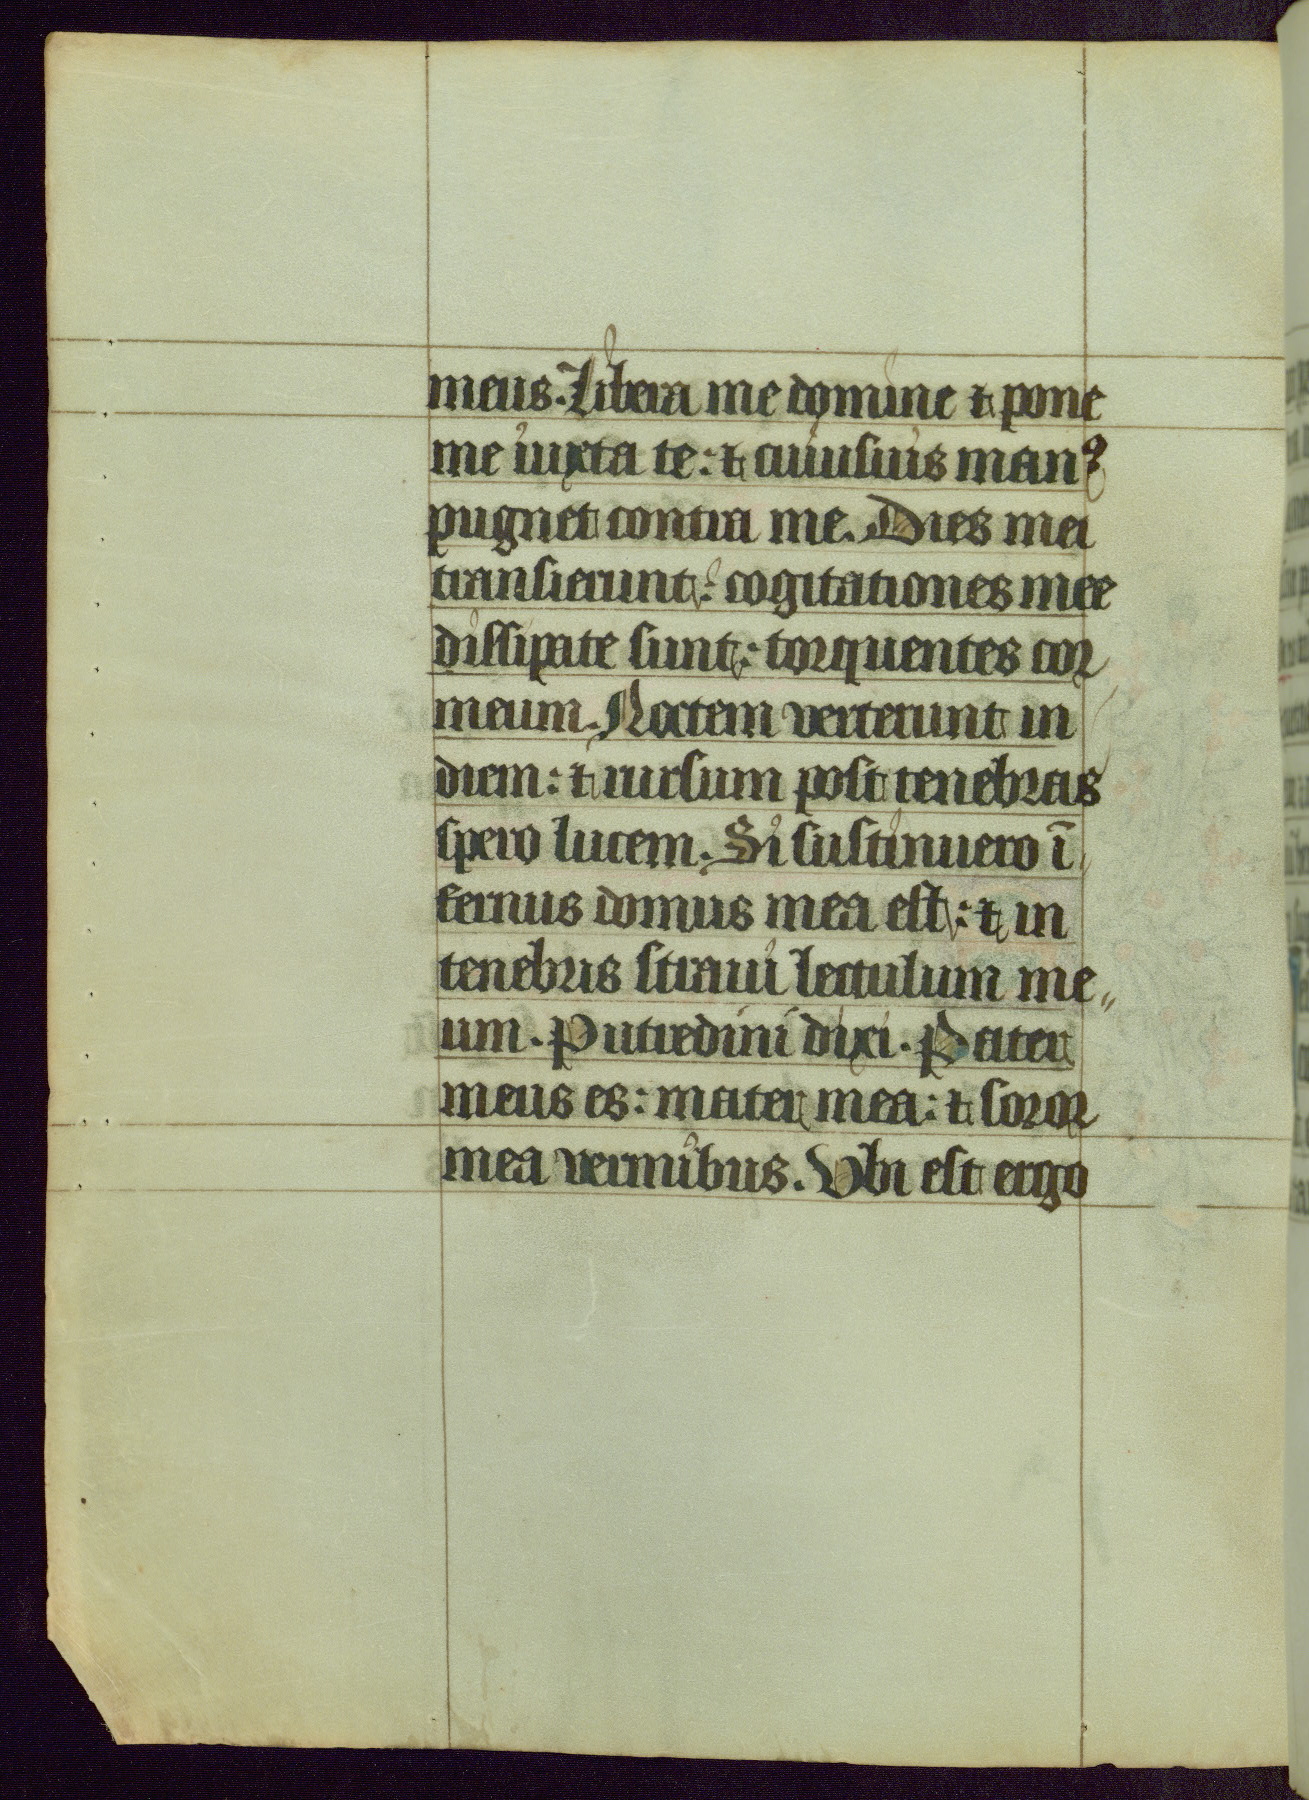 meus. Libera me domine ⁊ pone
me iuxta te: ⁊ cuiusuis manꝰ
pugnet contra me. Dies mei
transierunt: cogitationes mee
dissipate sunt: torquentes cor
meum. Noctem verterunt in
diem: ⁊ rursum post tenebras
spero lucem. Si sustinuero ī
fernus domus mea est: ⁊ in
tenebris straui lectulum me〃
um. Putredini dixi. Pater
meus es: mater mea: ⁊ soror
mea vermibus. Vbi est ergo